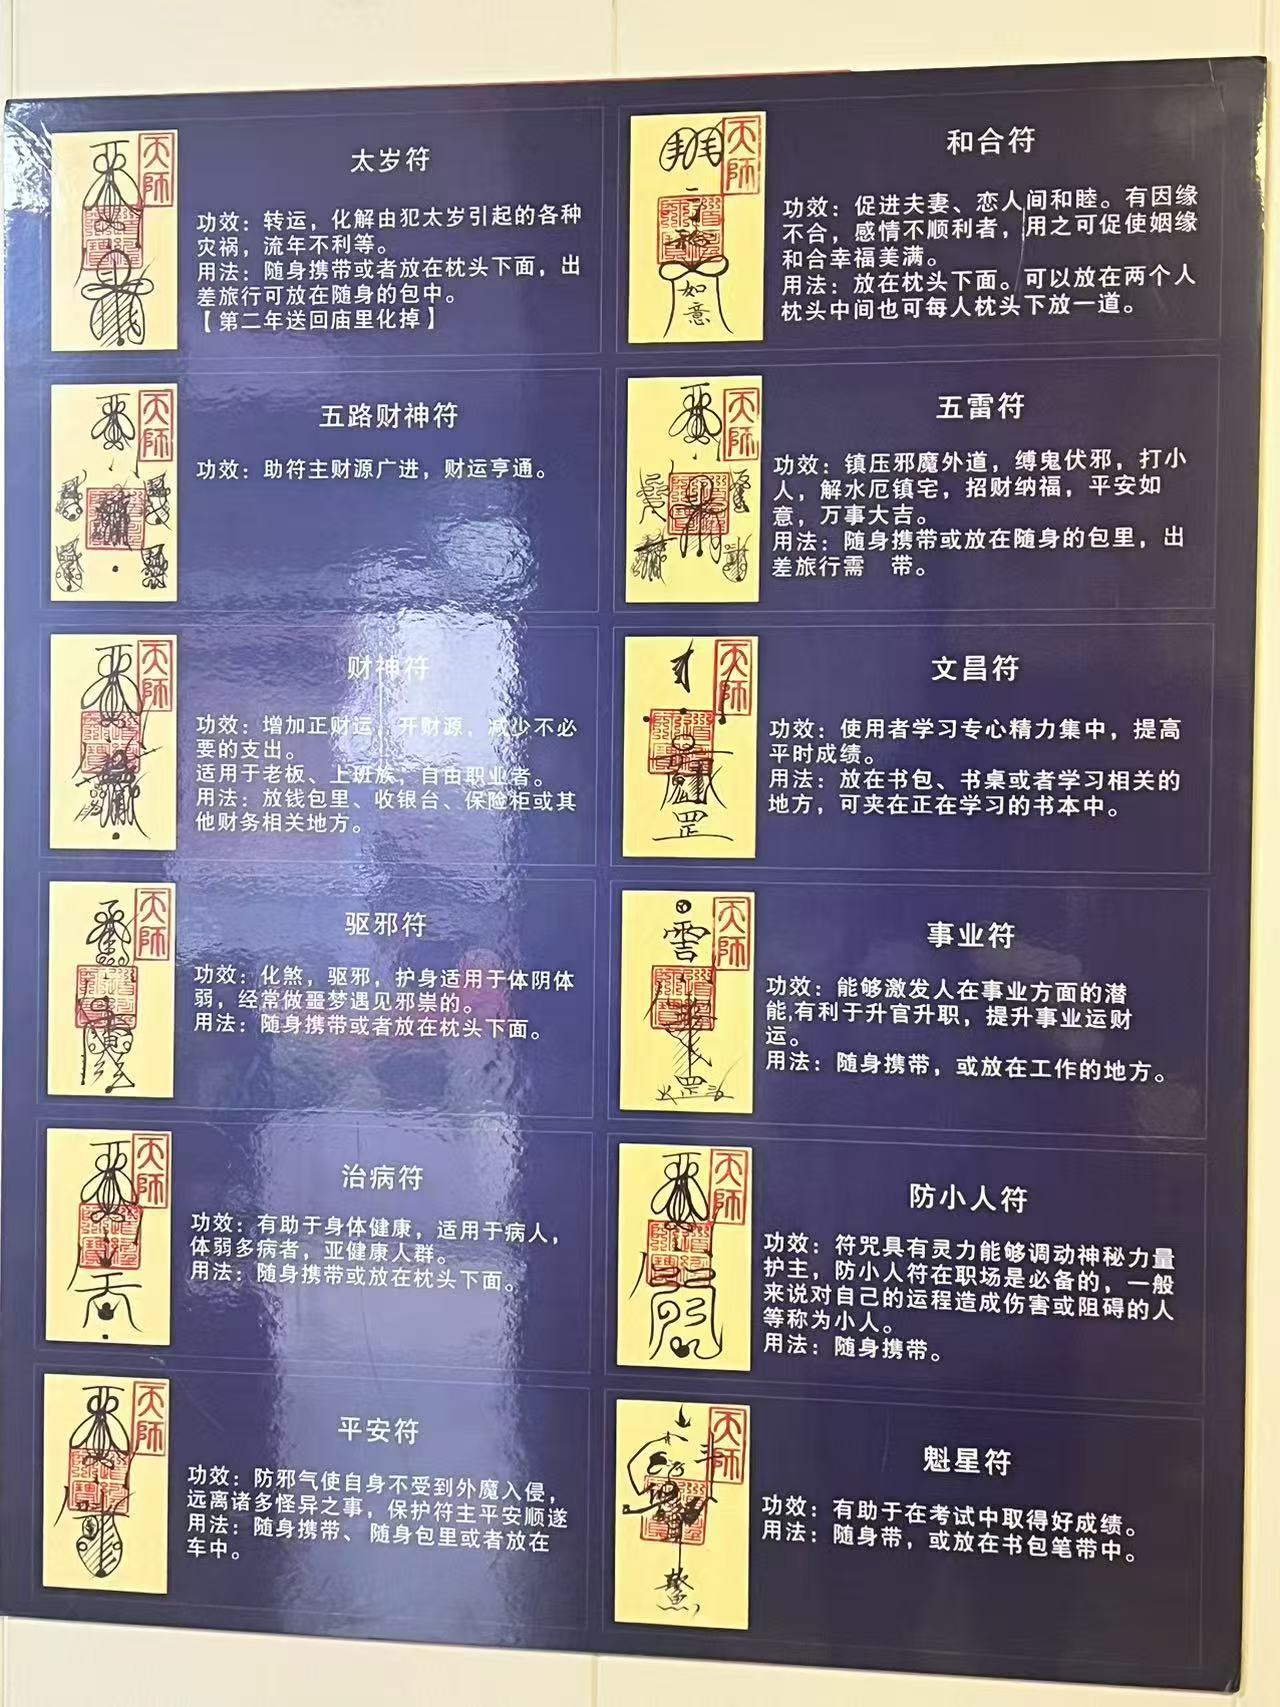 天師
太岁符
功效：转运，化解由犯太岁引起的各种
灾祸，流年不利等。
用法：随身携带或者放在枕头下面，出
差旅行可放在随身的包中。
【第二年送回庙里化掉】
天師
如
意
和合符
功效：促进夫妻、恋人间和睦。有因缘
不合，感情不顺利者，用之可促使姻缘
和合幸福美满。
用法：放在枕头下面。可以放在两个人
枕头中间也可每人枕头下放一道。
天師
五路财神符
功效：助符主财源广进，财运亨通。
天師
五雷符
功效：镇压邪魔外道，缚鬼伏邪，打小
人，解水厄镇宅，招财纳福，平安如
意，万事大吉。
用法：随身携带或放在随身的包里，出
差旅行需　带。
天師
财神符
功效：增加正财运，开财源，减少不必
要的支出。
适用于老板、上班族，自由职业者。
用法：放钱包里、收银台、保险柜或其
他财务相关地方。
天師
罡
文昌符
功效：使用者学习专心精力集中，提高
平时成绩。
用法：放在书包、书桌或者学习相关的
地方，可夹在正在学习的书本中。
天師
驱邪符
功效：化煞，驱邪，护身适用于体阴体
弱，经常做噩梦遇见邪祟的。
用法：随身携带或者放在枕头下面。
天師
雲
罡
事业符
功效：能够激发人在事业方面的潜
能,有利于升官升职，提升事业运财
运。
用法：随身携带，或放在工作的地方。
天師
治病符
功效：有助于身体健康，适用于病人，
体弱多病者，亚健康人群。
用法：随身携带或放在枕头下面。
天師
防小人符
功效：符咒具有灵力能够调动神秘力量
护主，防小人符在职场是必备的，一般
来说对自己的运程造成伤害或阻碍的人
等称为小人。
用法：随身携带。
天師
平安符
功效：防邪气使自身不受到外魔入侵，
远离诸多怪异之事，保护符主平安顺遂
用法：随身携带、随身包里或者放在
车中。
天師
魁星符
功效：有助于在考试中取得好成绩。
用法：随身带，或放在书包笔带中。